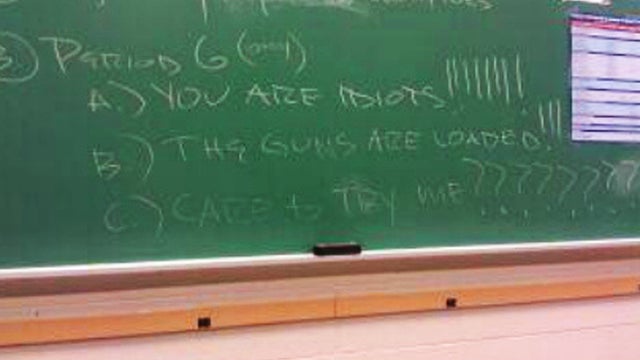 3.) PERIOD 6
A.) YOU ARE IDIOTS!!!!!!!!
B.) THE GUNS ARE LOADED!!!!
C.) CARE to TRY ME???????